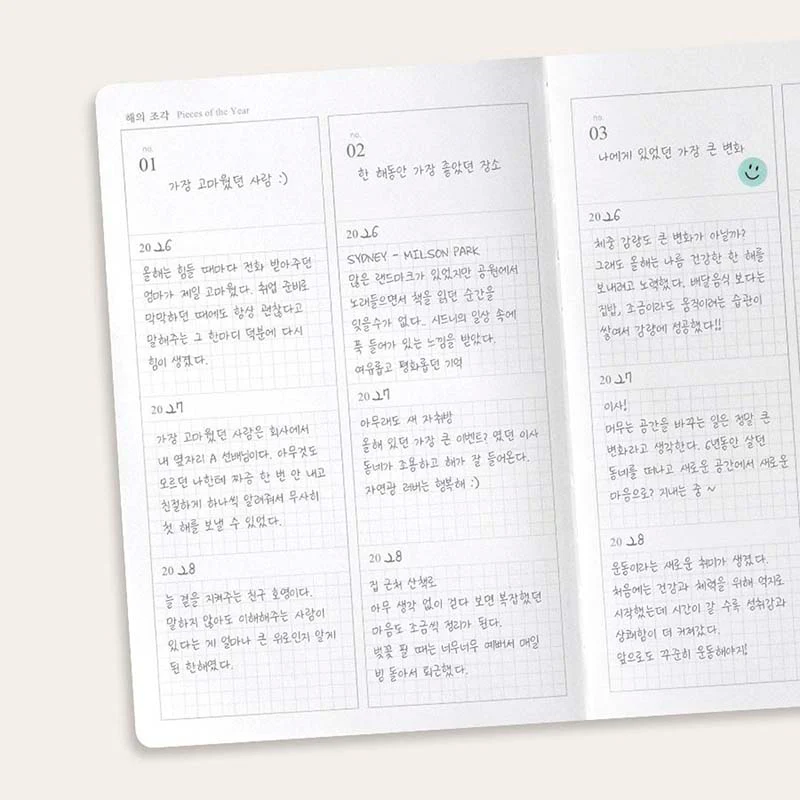 해의 조각 Pieces of the Year
no.
01
가장 고마웠던 사람 :)
2026
올해는 힘들 때마다 전화 받아주던
엄마가 제일 고마웠다. 취업 준비로
막막하던 때에도 항상 괜찮다고
말해주는 그 한마디 덕분에 다시
힘이 생겼다.
2027
가장 고마웠던 사람은 회사에서
내 옆자리 A 선배님이다. 아무것도
모르던 나한테 짜증 한 번 안 내고
친절하게 하나씩 알려줘서 무사히
첫 해를 보낼 수 있었다.
2028
늘 곁을 지켜주는 친구 호영이다.
말하지 않아도 이해해주는 사람이
있다는 게 얼마나 큰 위로인지 알게
된 한해였다.
no.
02
한 해동안 가장 좋았던 장소
2026
SYDNEY - MILSON PARK
많은 랜드마크가 있었지만 공원에서
노래들으면서 책을 읽던 순간을
잊을수가 없다.. 시드니의 일상 속에
푹 들어가 있는 느낌을 받았다.
여유롭고 평화롭던 기억
2027
아무래도 새 자취방
올해 있던 가장 큰 이벤트? 였던 이사
동네가 조용하고 해가 잘 들어온다.
자연광 러버는 행복해 :)
2028
집 근처 산책로
아무 생각 없이 걷다 보면 복잡했던
마음도 조금씩 정리가 된다.
벚꽃 필 때는 너무너무 예뻐서 매일
빙 돌아서 퇴근했다.
no.
03
나에게 있었던 가장 큰 변화
2026
체중 감량도 큰 변화가 아닐까?
그래도 올해는 나름 건강한 한 해를
보내려고 노력했다. 배달음식 보다는
집밥, 조금이라도 움직이려는 습관이
쌓여서 감량에 성공했다!!
2027
이사!
머무는 공간을 바꾸는 일은 정말 큰
변화라고 생각한다. 6년동안 살던
동네를 떠나고 새로운 공간에서 새로운
마음으로? 지내는 중 ~
2028
운동이라는 새로운 취미가 생겼다.
처음에는 건강과 체력을 위해 억지로
시작했는데 시간이 갈 수록 성취감과
상쾌함이 더 커져갔다.
앞으로도 꾸준히 운동해야지!